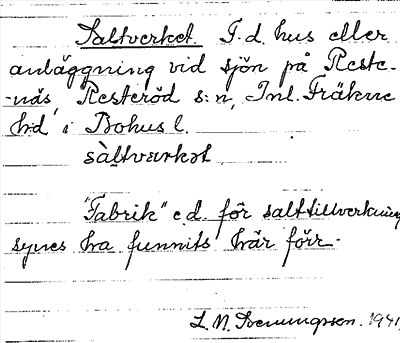 Saltverket. F.d. hus eller
anläggning vid sjön på Reste-
-näs, Resteröd s:n, Inl. Fräkne
hd i Bohus l.
sàltværkət
"Fabrik" e d för salttillverkning
synes ha funnits här förr.
L. M. Svenungsson. 1941